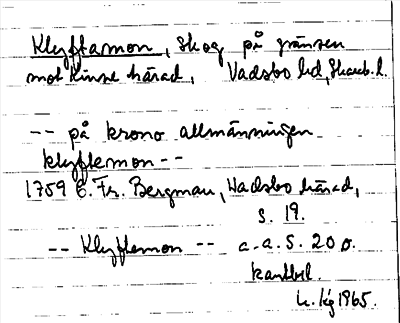 Klyftamon, skog på gränsen
mot Kinne härad, Vadsbo hd, Skarab. l.
-- på krono allmänningen
klyftemon --
1759 C. Fr. Bergman, Wadsbo härad,
s. 19.
-- Klyftemon -- a.a. s. 20 o.
kartbil.
1965.